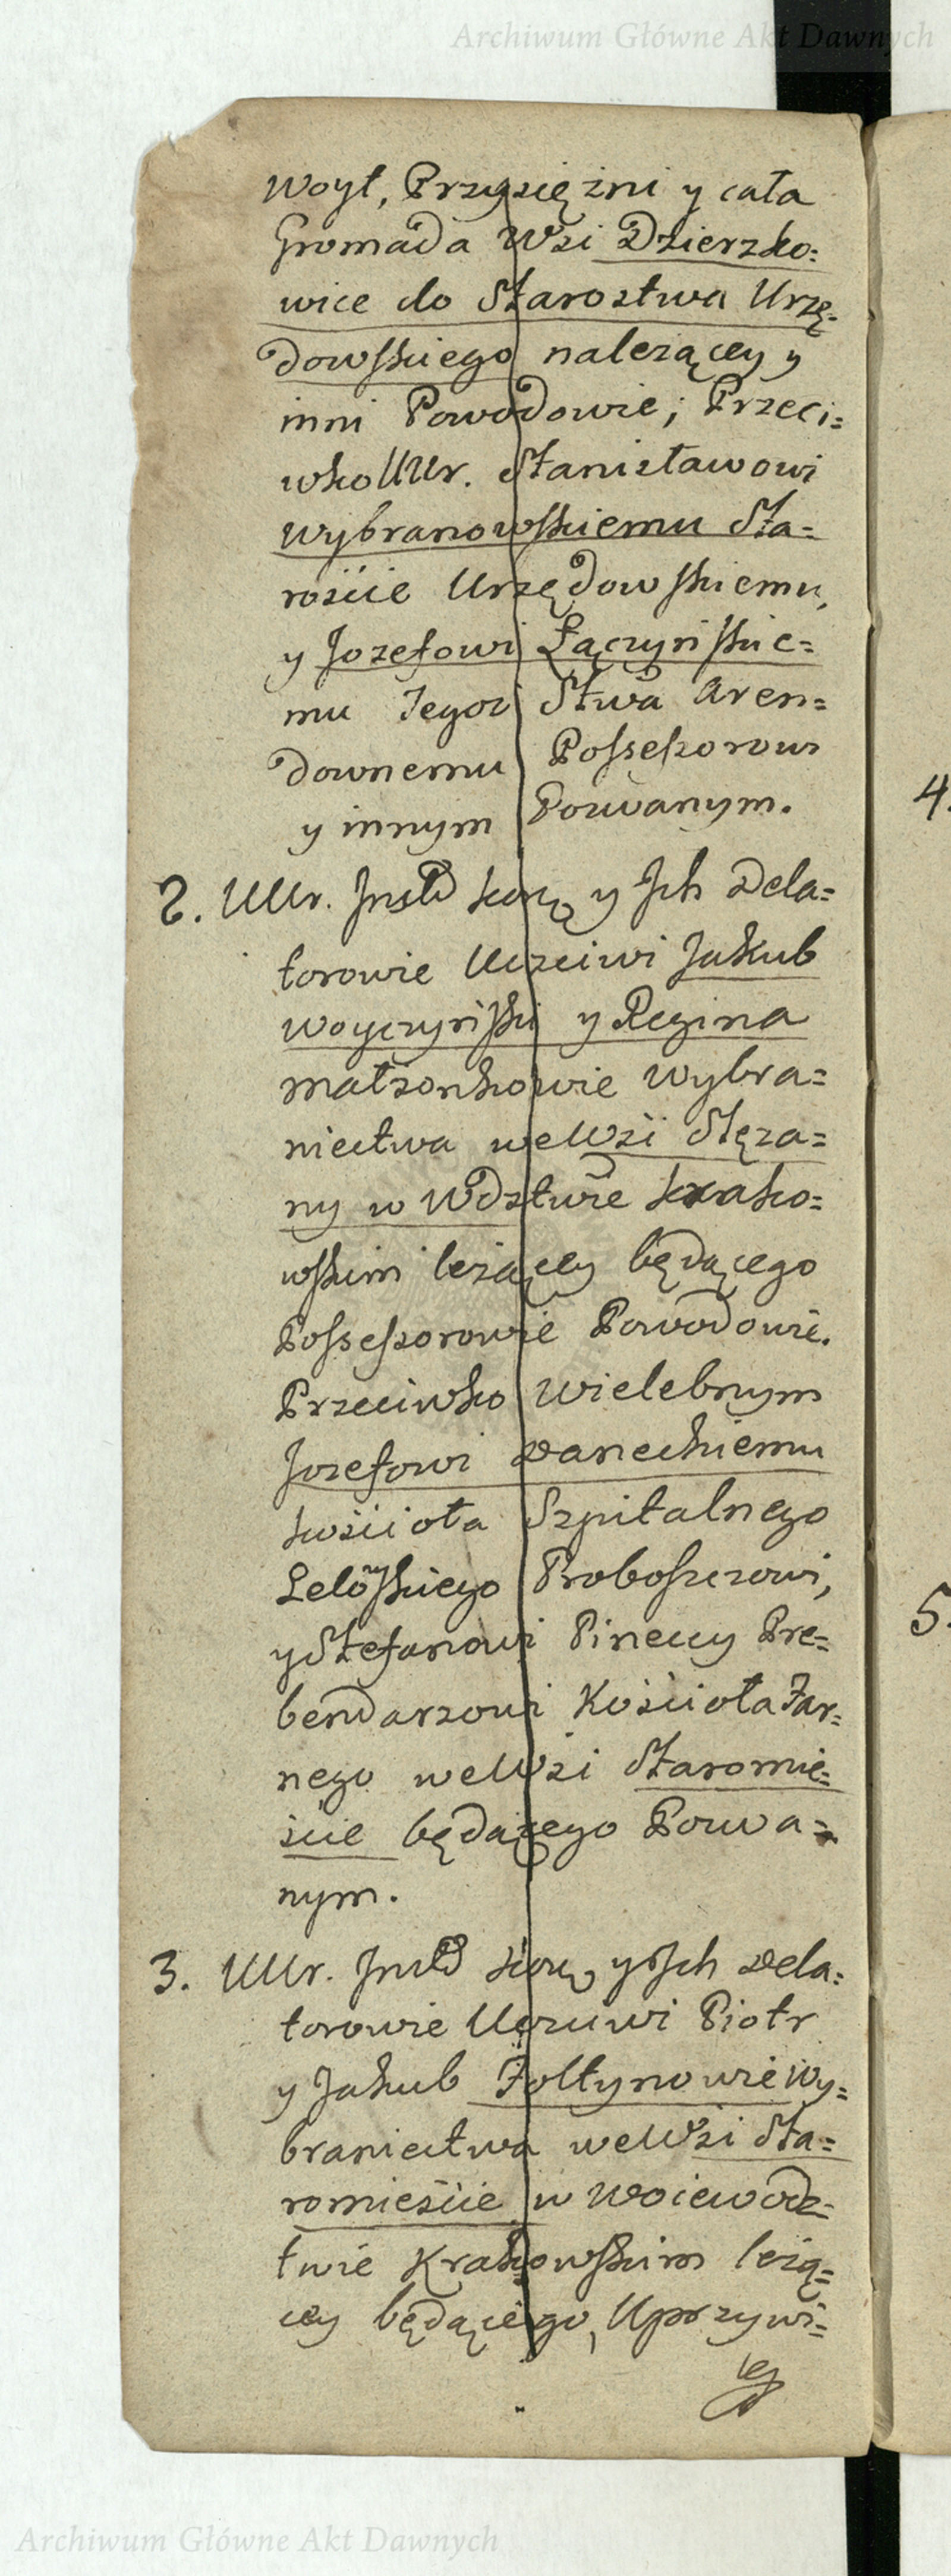 Archiwum Główne Akt Dawnych
Woyt, Przysiężni y cała
Gromada Wsi Dzierzko=
wice do Starostwa Urzę=
dowskiego należącey y
inni Powodowie; Przeci=
wko UUr. Stanisławowi
Wybranowskiemu Sta=
rościie Urzędowskiemu,
y Jozefowi Łączyńskie=
mu Tegoż Stwa Aren=
downemu Possessorowi
y innym Pozwanym.
4.
2. UUr. Insty kor: y Jch Dela=
torowie Uczciwi Jakub
Woyczyński y Regina
małżonkowie Wybra=
niectwa weWsi Stęza=
ny w Wdztwie Krako=
wskim leżącey będącego
Possessorowie Powodowie.
Przeciwko Wielebnym
Jozefowi Daneckiemu
kościoła Szpitalnego
Lelowskiego Proboszczowi,
y Stefanowi Pineccy Pre=
bendarzowi Kościoła Far=
nego weWsi Staromie=
ście będącego Pozwa=
nym.
5.
3. UUr. Insty kor: y Jch Dela=
torowie Uczciwi Piotr
y Jakub Żołtynowie Wy=
braniectwa weWsi Sta=
romieście w Woiewodz=
twie Krakowskim leżą=
cey będącego, Uprzywi=
ley
Archiwum Główne Akt Dawnych